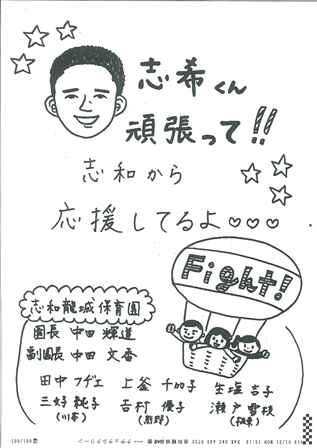 志希くん
頑張って!!
志和から
応援してるよ♡♡♡
Fight!
志和龍城保育園
園長 中田 輝道
副園長 中田 文香
田中 フヂエ 上釜 千加子 生塩 吉子
三好 純子 吉村 優子 瀬戸 雪枝